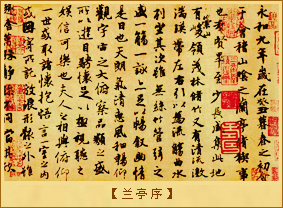 永和九年歲在癸丑暮春之初會
于會稽山陰之蘭亭脩稧事
也群賢畢至少長咸集此地
有崇山峻領茂林脩竹又有清流激
湍暎帶左右引以為流觴曲水
列坐其次雖無絲竹管弦之
盛一觴一詠亦足以暢敘幽情
是日也天朗氣清惠風和暢仰
觀宇宙之大俯察品類之盛
所以遊目騁懷足以極視聽之
娛信可樂也夫人之相與俯仰
一世或取諸懷抱悟言一室之內
或因寄所託放浪形骸之外雖
趣舍萬殊靜躁不同當其欣
【兰亭序】